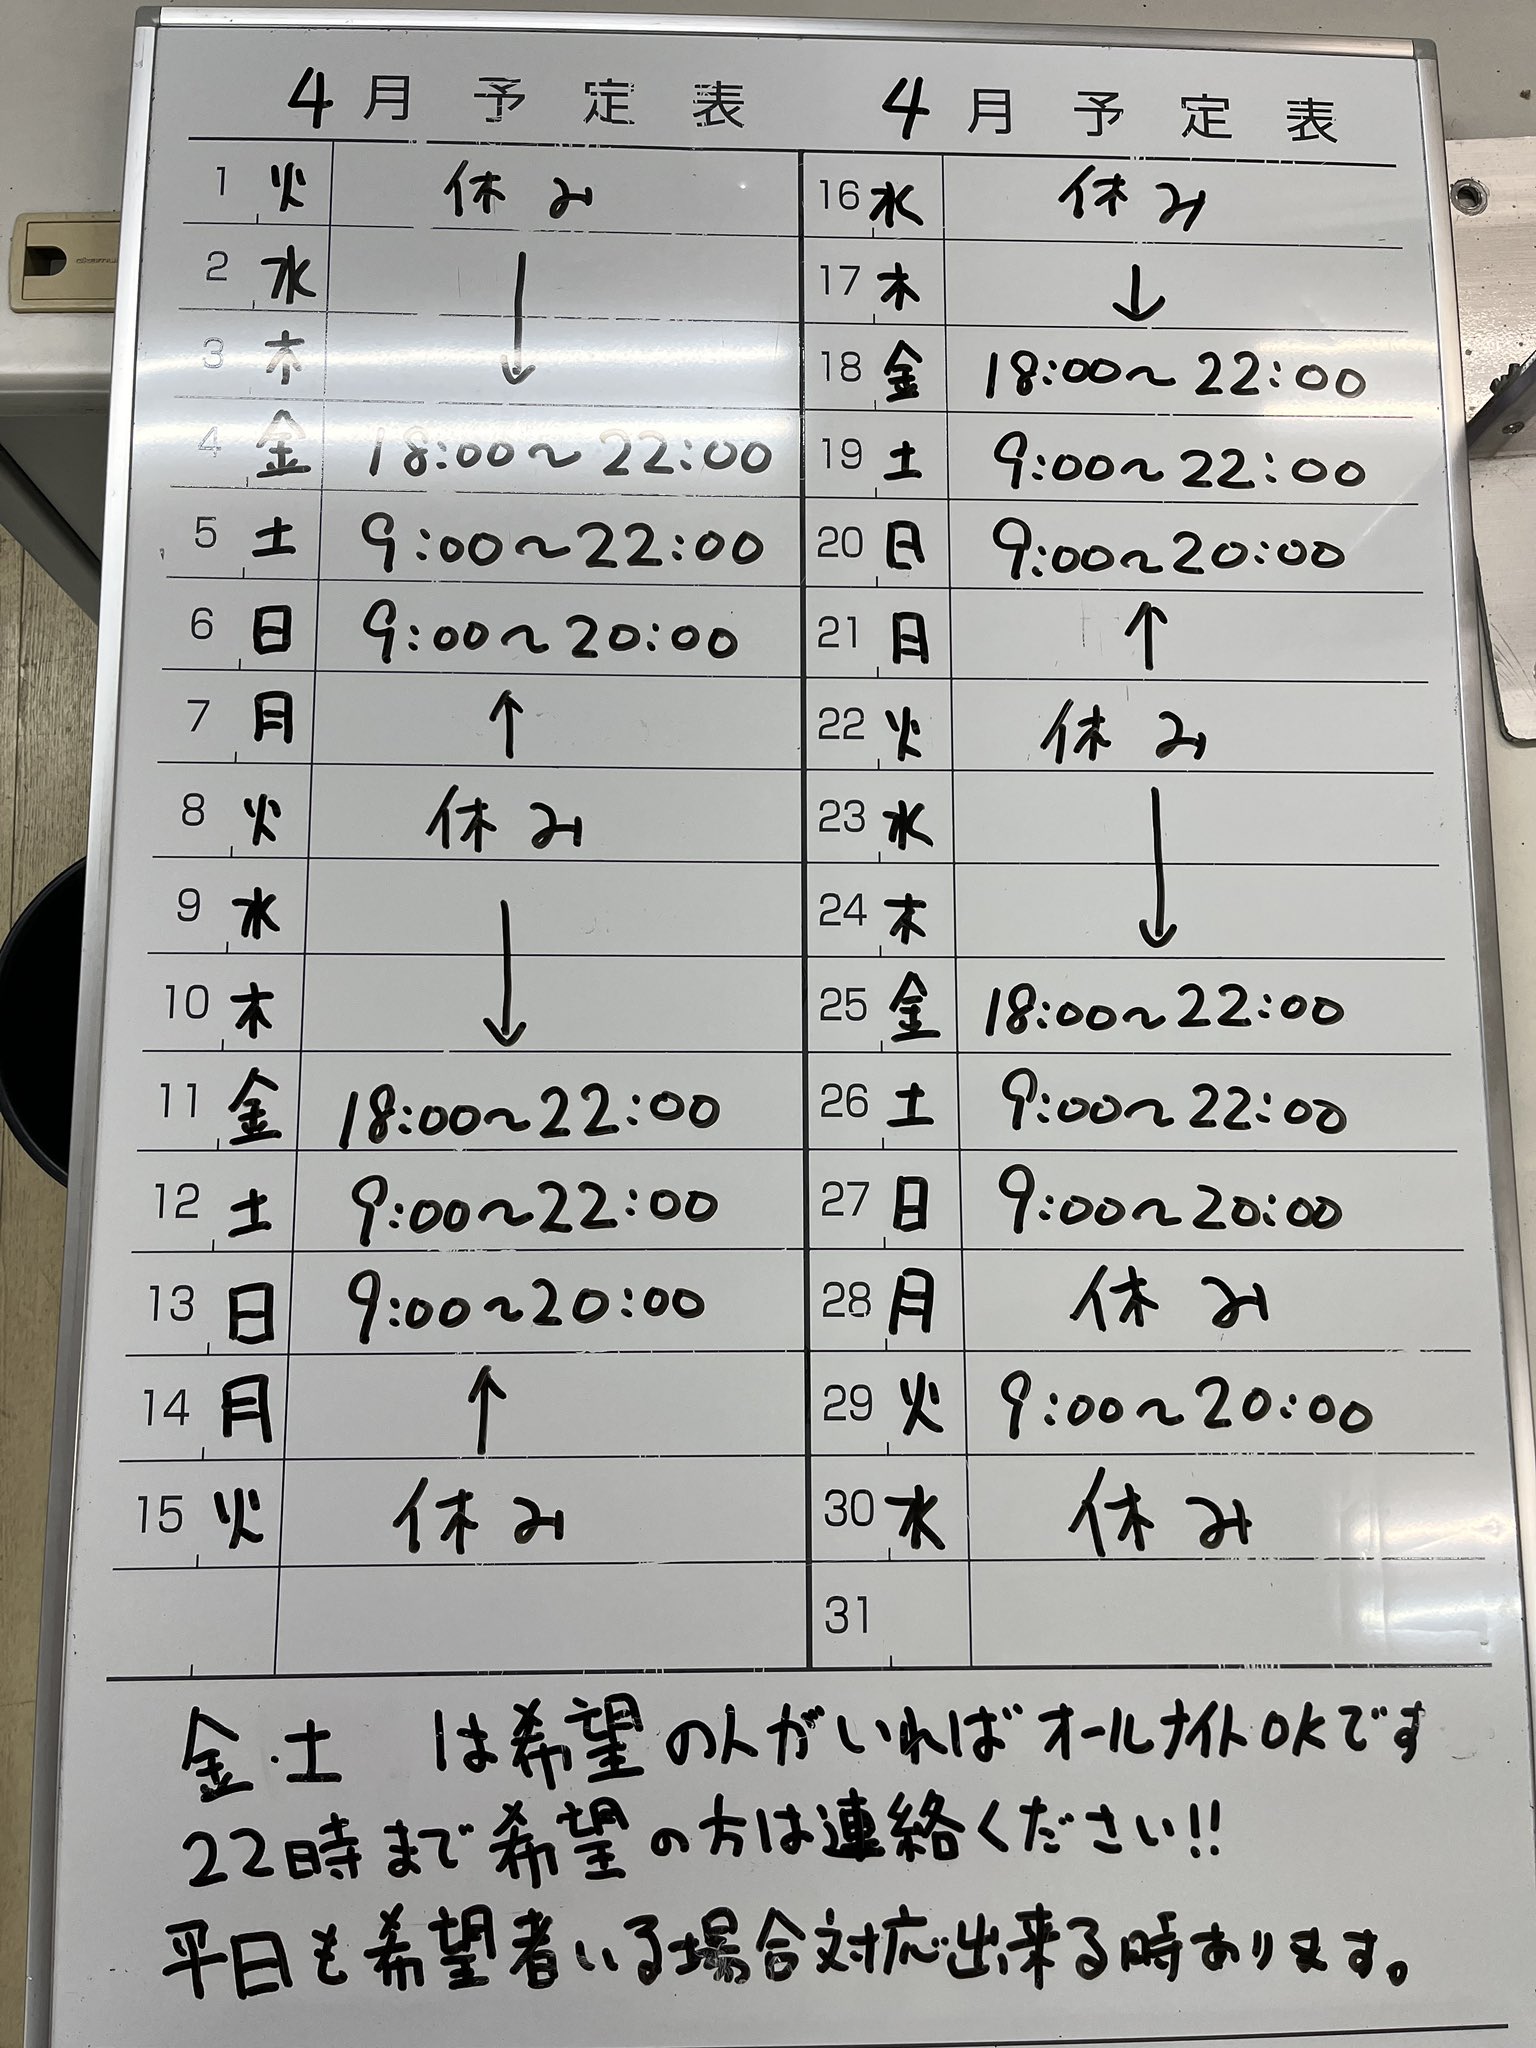 4月予定表
1 火 休み
2 水 ↓
3 木
4 金 18:00〜22:00
5 土 9:00〜22:00
6 日 9:00〜20:00
7 月 ↑
8 火 休み
9 水 ↓
10 木
11 金 18:00〜22:00
12 土 9:00〜22:00
13 日 9:00〜20:00
14 月 ↑
15 火 休み
4月予定表
16 水 休み
17 木 ↓
18 金 18:00〜22:00
19 土 9:00〜22:00
20 日 9:00〜20:00
21 月 ↑
22 火 休み
23 水 ↓
24 木
25 金 18:00〜22:00
26 土 9:00〜22:00
27 日 9:00〜20:00
28 月 休み
29 火 9:00〜20:00
30 水 休み
31
金・土 は希望の人がいればオールナイトOKです
22時まで希望の方は連絡ください!!
平日も希望者いる場合対応出来る時あります。